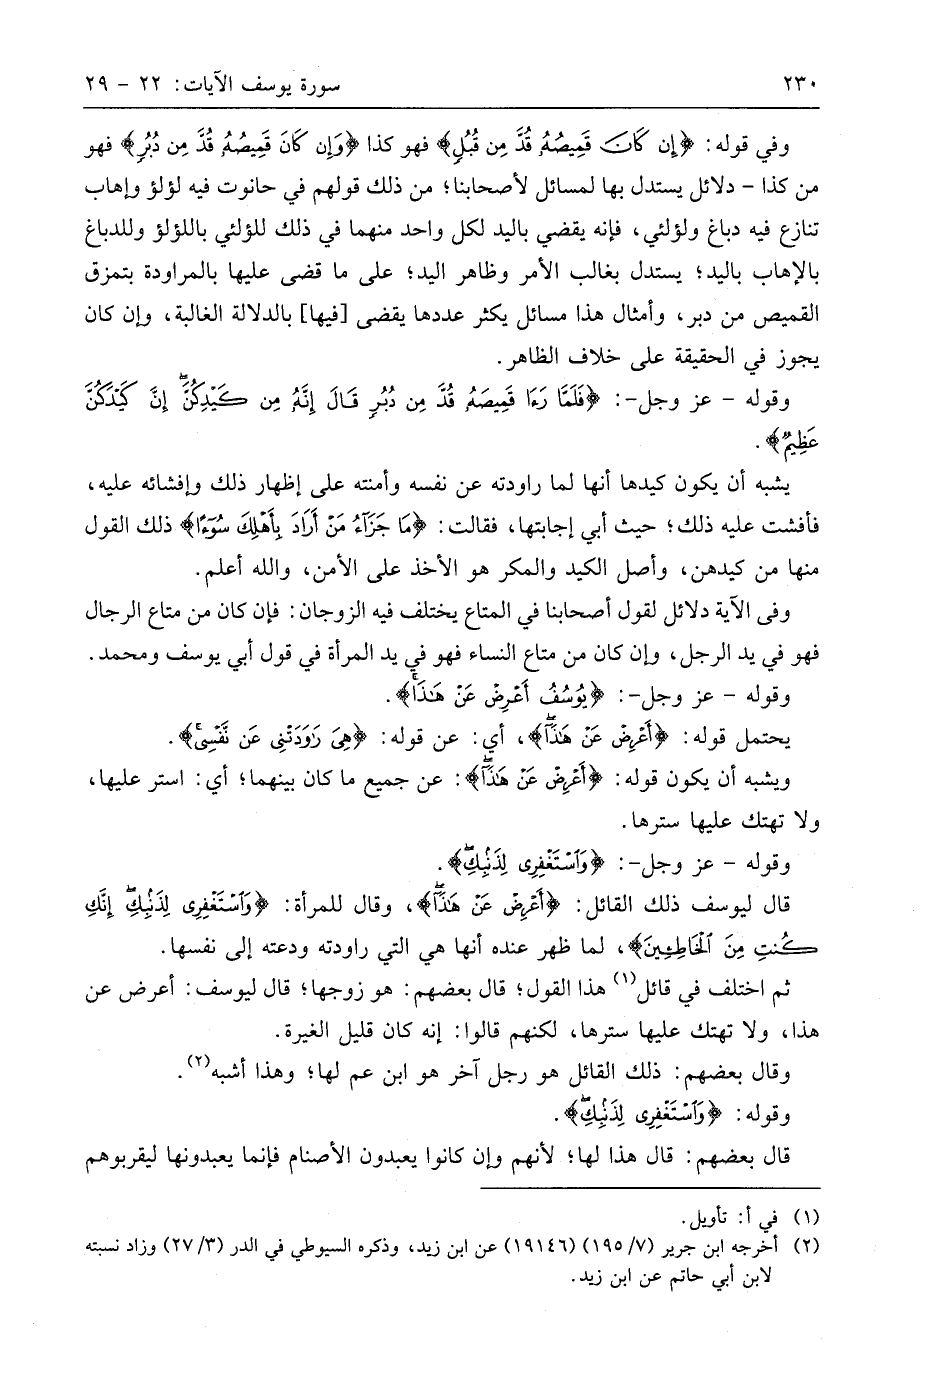 ٢٣٠ سورة يوسف الآيات: ٢٢ - ٢٩
وفي قوله: ﴿إِن كَانَ قَمِيصُهُ قُدَّ مِن قُبُلٍ﴾ فهو كذا ﴿وَإِن كَانَ قَمِيصُهُ قُدَّ مِن دُبُرٍ﴾ فهو
من كذا - دلائل يستدل بها لمسائل لأصحابنا؛ من ذلك قولهم في حانوت فيه لؤلؤ وإهاب
تنازع فيه دباغ ولؤلئي، فإنه يقضي باليد لكل واحد منهما في ذلك للؤلئي باللؤلؤ وللدباغ
بالإهاب باليد؛ يستدل بغالب الأمر وظاهر اليد؛ على ما قضى عليها بالمراودة بتمزق
القميص من دبر، وأمثال هذا مسائل يكثر عددها يقضى [فيها] بالدلالة الغالبة، وإن كان
يجوز في الحقيقة على خلاف الظاهر.
وقوله - عز وجل-: ﴿فَلَمَّا رَءَا قَمِيصَهُ قُدَّ مِن دُبُرٍ قَالَ إِنَّهُ مِن كَيْدِكُنَّۖ إِنَّ كَيْدَكُنَّ
عَظِيمٌ﴾.
يشبه أن يكون كيدها أنها لما راودته عن نفسه وأمنته على إظهار ذلك وإفشائه عليه،
فأفشت عليه ذلك؛ حيث أبي إجابتها، فقالت: ﴿مَا جَزَآءُ مَنْ أَرَادَ بِأَهْلِكَ سُوٓءًا﴾ ذلك القول
منها من كيدهن، وأصل الكيد والمكر هو الأخذ على الأمن، والله أعلم.
وفى الآية دلائل لقول أصحابنا في المتاع يختلف فيه الزوجان: فإن كان من متاع الرجال
فهو في يد الرجل، وإن كان من متاع النساء فهو في يد المرأة في قول أبي يوسف ومحمد.
وقوله - عز وجل-: ﴿يُوسُفُ أَعْرِضْ عَنْ هَٰذَاۚ﴾.
يحتمل قوله: ﴿أَعْرِضْ عَنْ هَٰذَاۖ﴾، أي: عن قوله: ﴿هِىَ رَٰوَدَتْنِى عَن نَّفْسِىۚ﴾.
ويشبه أن يكون قوله: ﴿أَعْرِضْ عَنْ هَٰذَاۖ﴾: عن جميع ما كان بينهما؛ أي: استر عليها،
ولا تهتك عليها سترها.
وقوله - عز وجل-: ﴿وَٱسْتَغْفِرِى لِذَنۢبِكِۖ﴾.
قال ليوسف ذلك القائل: ﴿أَعْرِضْ عَنْ هَٰذَاۖ﴾، وقال للمرأة: ﴿وَٱسْتَغْفِرِى لِذَنۢبِكِۖ إِنَّكِ
كُنتِ مِنَ ٱلْخَاطِـِٔينَ﴾، لما ظهر عنده أنها هي التي راودته ودعته إلى نفسها.
ثم اختلف في قائل(١) هذا القول؛ قال بعضهم: هو زوجها؛ قال ليوسف: أعرض عن
هذا، ولا تهتك عليها سترها، لكنهم قالوا: إنه كان قليل الغيرة.
وقال بعضهم: ذلك القائل هو رجل آخر هو ابن عم لها؛ وهذا أشبه(٢).
وقوله: ﴿وَٱسْتَغْفِرِى لِذَنۢبِكِۖ﴾.
قال بعضهم: قال هذا لها؛ لأنهم وإن كانوا يعبدون الأصنام فإنما يعبدونها ليقربوهم
(١) في أ: تأويل.
(٢) أخرجه ابن جرير (٧/ ١٩٥) (١٩١٤٦) عن ابن زيد، وذكره السيوطي في الدر (٣/ ٢٧) وزاد نسبته
لابن أبي حاتم عن ابن زيد.